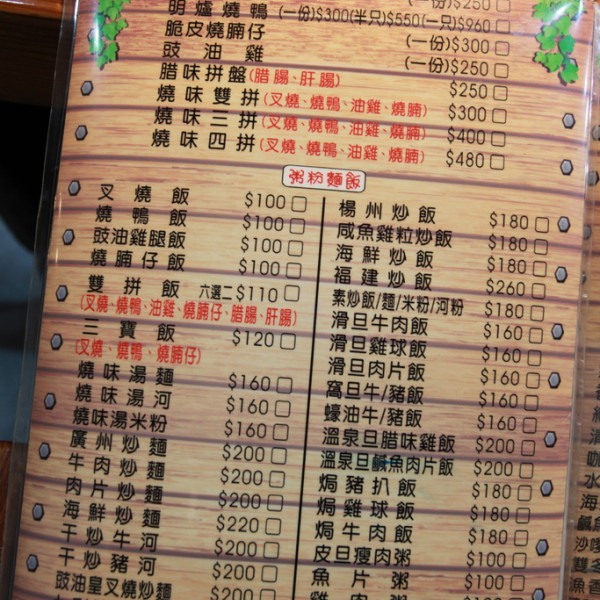 (一份)$250
明爐燒鴨(一份)$300(半只)$550(一只)$960
脆皮燒腩仔 (一份)$300
豉油雞 (一份)$250
腊味拼盤(腊腸、肝腸) $250
燒味雙拼(叉燒、燒鴨、油雞、燒腩) $300
燒味三拼(叉燒、燒鴨、油雞、燒腩) $400
燒味四拼(叉燒、燒鴨、油雞、燒腩) $480
粥粉麵飯
叉燒飯 $100
燒鴨飯 $100
豉油雞腿飯 $100
燒腩仔飯 $100
雙拼飯 六選二 $110
(叉燒、燒鴨、油雞、燒腩仔、腊腸、肝腸)
三寶飯 $120
(叉燒、燒鴨、燒腩仔)
燒味湯麵 $160
燒味湯河 $160
燒味湯米粉 $160
廣州炒麵 $200
牛肉炒麵 $200
肉片炒麵 $200
海鮮炒麵 $220
干炒牛河 $200
干炒豬河 $200
豉油皇叉燒炒麵 $200
楊州炒飯 $180
咸魚雞粒炒飯 $180
海鮮炒飯 $180
福建炒飯 $260
素炒飯/麵/米粉/河粉 $180
滑旦牛肉飯 $160
滑旦雞球飯 $160
滑旦肉片飯 $160
窩旦牛/豬飯 $160
蠔油牛/豬飯 $160
溫泉旦腊味雞飯 $200
溫泉旦鹹魚肉片飯 $200
焗豬扒飯 $180
焗雞球飯 $180
焗牛肉飯 $180
皮旦瘦肉粥 $100
魚片粥 $100
雞肉粥 $100